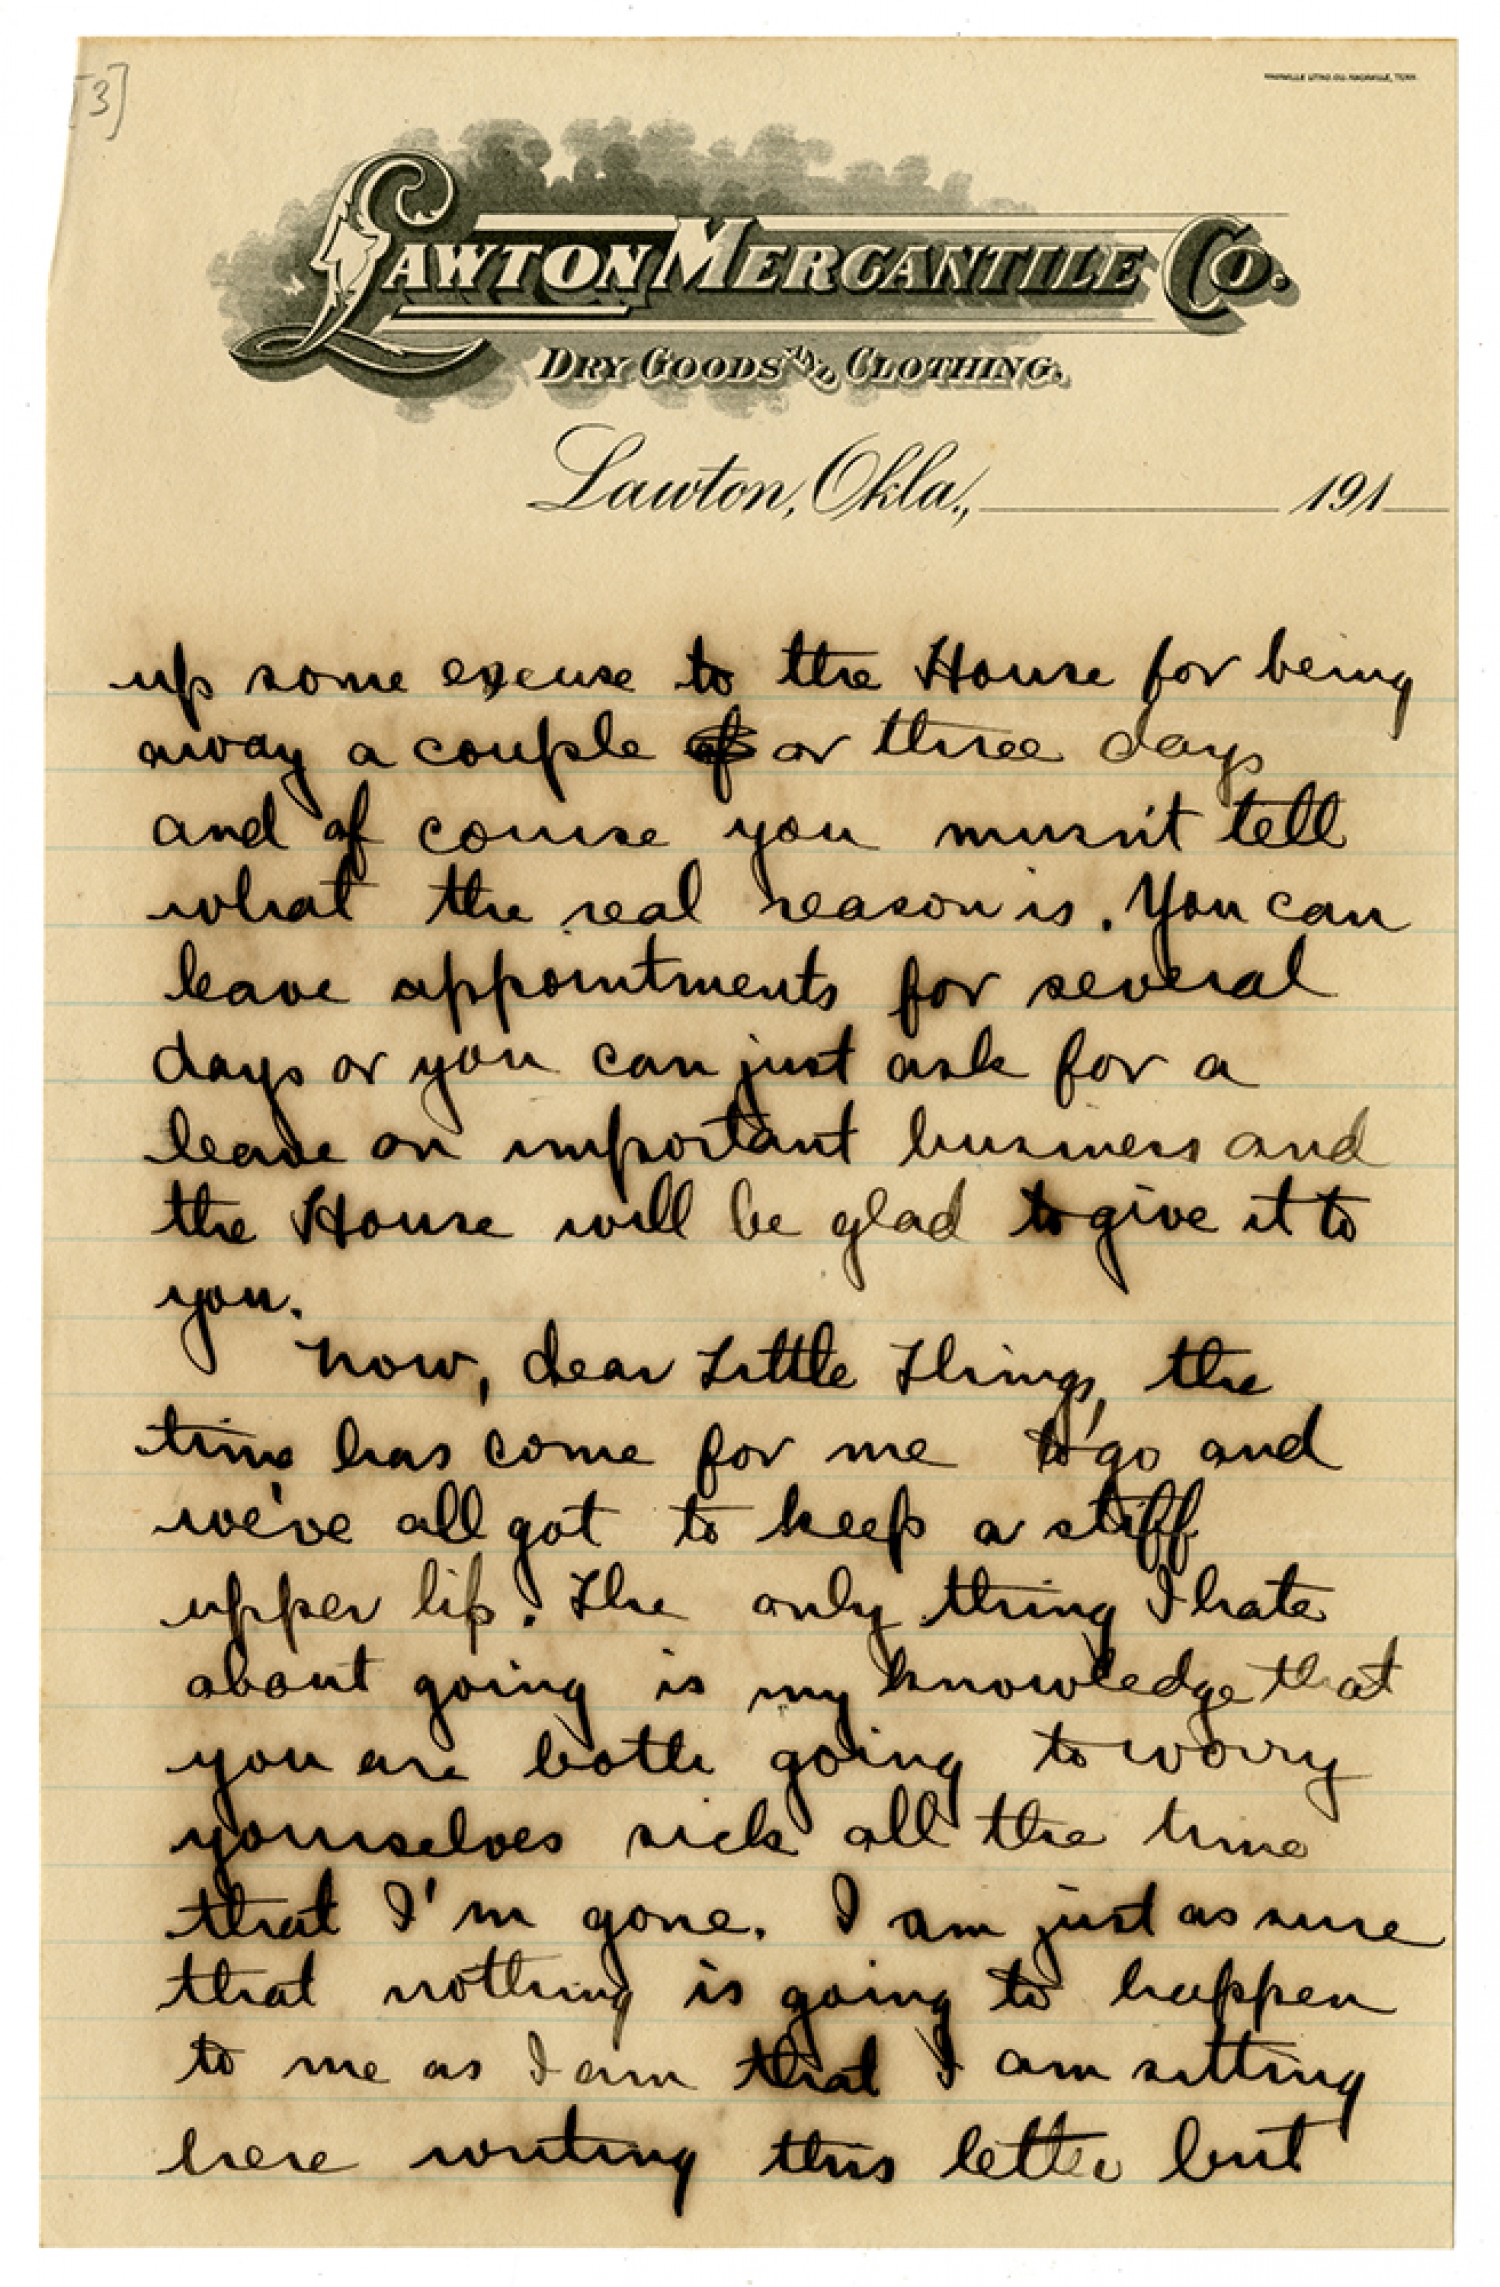 [3]
LAWTON MERCANTILE CO.
DRY GOODS AND CLOTHING.
Lawton, Okla., 191
up some excuse to the House for being
away a couple of or three days
and of course you musn't tell
what the real reason is. You can
leave appointments for several
days or you can just ask for a
leave on important business and
the House will be glad to give it to
you.
Now, dear Little Things, the
time has come for me to go and
we've all got to keep a stiff
upper lip. The only thing I hate
about going is my knowledge that
you are both going to worry
yourselves sick all the time
that I'm gone. I am just as sure
that nothing is going to happen
to me as I am that I am sitting
here writing this letter but